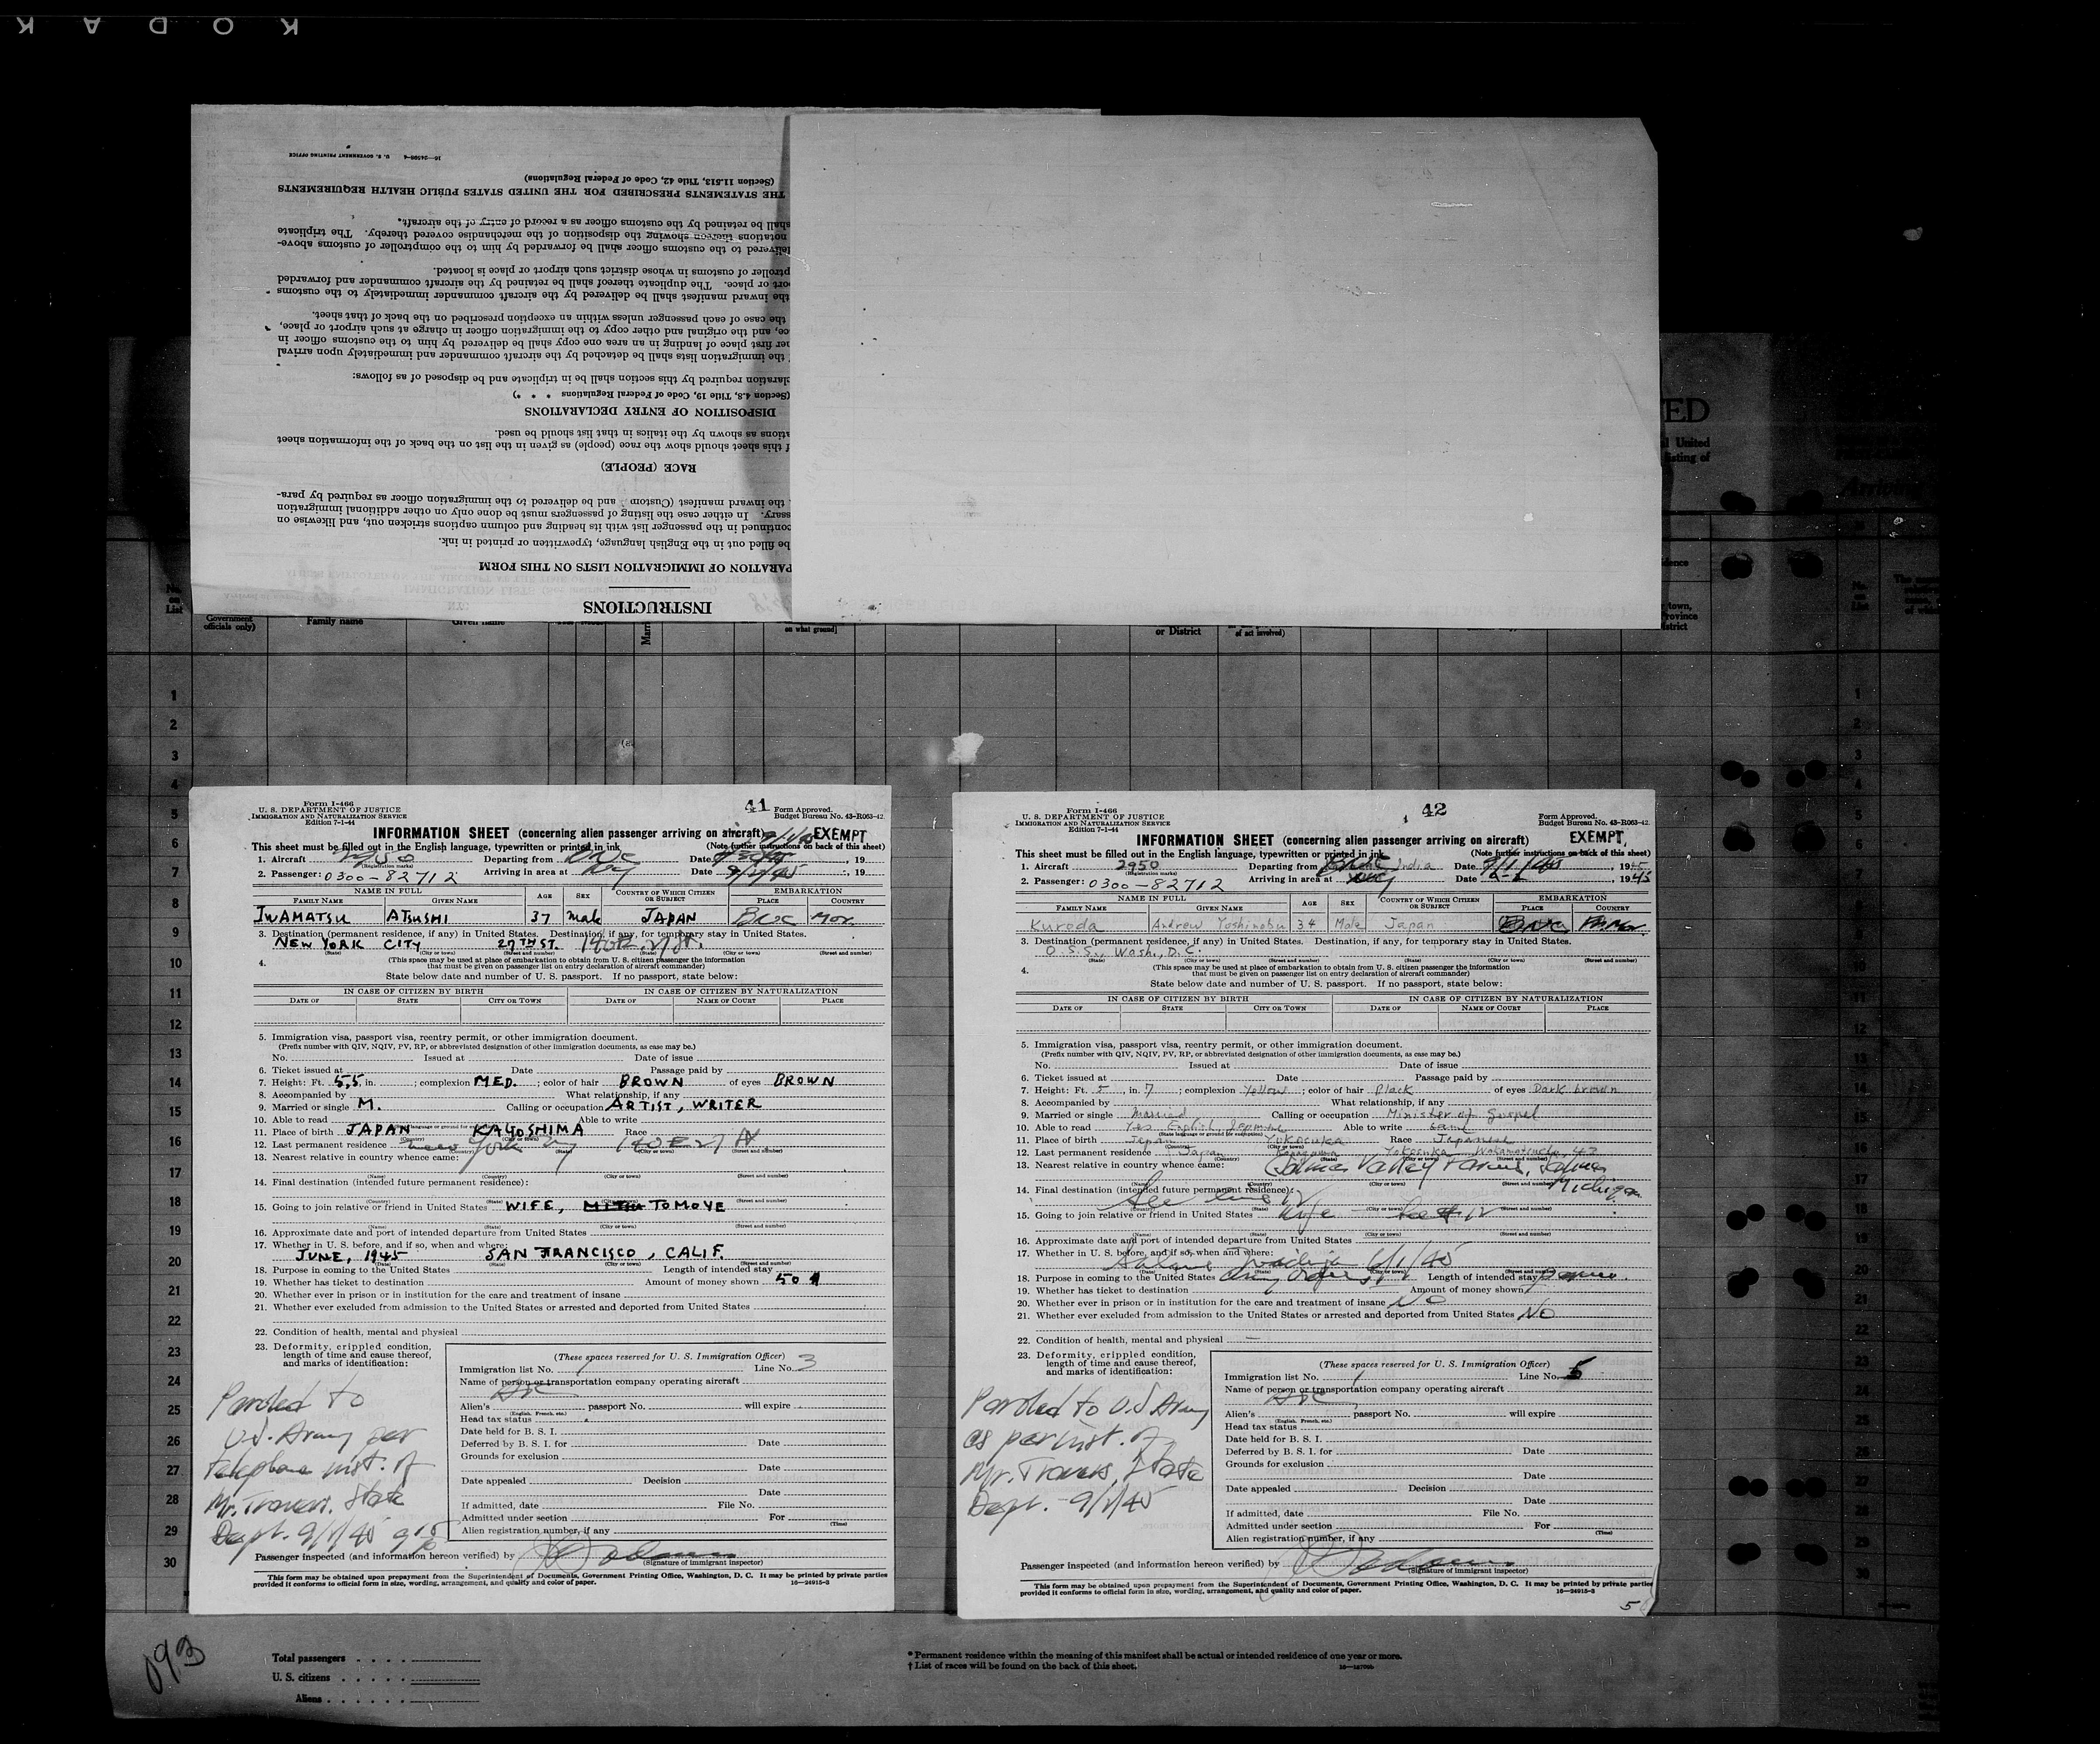 KODAK
16—24598-4 U. S. GOVERNMENT PRINTING OFFICE
(Section 11.513, Title 42, Code of Federal Regulations)
THE STATEMENTS PRESCRIBED FOR THE UNITED STATES PUBLIC HEALTH REQUIREMENTS
shall be retained by the customs officer as a record of entry of the aircraft.
notations thereon showing the disposition of the merchandise covered thereby. The triplicate
delivered to the customs officer shall be forwarded by him to the comptroller of customs above-
ptroller of customs in whose district such airport or place is located.
ort or place. The duplicate thereof shall be retained by the aircraft commander and forwarded
the inward manifest shall be delivered by the aircraft commander immediately to the customs
the case of each passenger unless within an exception prescribed on the back of that sheet.
ce, and the original and other copy to the immigration officer in charge at such airport or place,
her first place of landing in an area one copy shall be delivered by him to the customs officer in
the immigration lists shall be detached by the aircraft commander and immediately upon arrival
claration required by this section shall be in triplicate and be disposed of as follows:
(Section 4.8, Title 19, Code of Federal Regulations * * *)
DISPOSITION OF ENTRY DECLARATIONS
ations as shown by the italics in that list should be used.
f this sheet should show the race (people) as given in the list on the back of the information sheet
RACE (PEOPLE)
the inward manifest (Custom and be delivered to the immigration officer as required by para-
ssary. In either case the listing of passengers must be done only on other additional immigration
continued in the passenger list with its heading and column captions stricken out, and likewise on
be filled out in the English language, typewritten or printed in ink.
PARATION OF IMMIGRATION LISTS ON THIS FORM
INSTRUCTIONS
ED
l United
isting of
No. on List
Government officials only)
Family name
Given name
on what ground]
or District
of act involved)
town,
rovince
istrict
1
2
3
4
5
6
7
8
9
10
11
12
13
14
15
16
17
18
19
20
21
22
23
24
25
26
27
28
29
30
41
Form I-466
U. S. DEPARTMENT OF JUSTICE
IMMIGRATION AND NATURALIZATION SERVICE
Edition 7-1-44
Form Approved.
Budget Bureau No. 43-R063-42.
INFORMATION SHEET (concerning alien passenger arriving on aircraft) EXEMPT
This sheet must be filled out in the English language, typewritten or printed in ink (Note further instructions on back of this sheet)
1. Aircraft 2950 Departing from Date , 19
(Registration marks)
2. Passenger: 0300-82712 Arriving in area at Date , 19
NAME IN FULL AGE SEX COUNTRY OF WHICH CITIZEN OR SUBJECT EMBARKATION
FAMILY NAME GIVEN NAME PLACE COUNTRY
IWAMATSU ATSUSHI 37 Male JAPAN Mor.
3. Destination (permanent residence, if any) in United States. Destination, if any, for temporary stay in United States.
NEW YORK CITY 27TH ST.
(State) (City or town) (Street and number) (State) (City or town) (Street and number)
4. (This space may be used at place of embarkation to obtain from U. S. citizen passenger the information
that must be given on passenger list on entry declaration of aircraft commander)
State below date and number of U. S. passport. If no passport, state below:
IN CASE OF CITIZEN BY BIRTH IN CASE OF CITIZEN BY NATURALIZATION
DATE OF STATE CITY OR TOWN DATE OF NAME OF COURT PLACE
5. Immigration visa, passport visa, reentry permit, or other immigration document.
(Prefix number with QIV, NQIV, PV, RP, or abbreviated designation of other immigration documents, as case may be.)
No. Issued at Date of issue
6. Ticket issued at Date Passage paid by
7. Height: Ft. 5,5 in. ; complexion MED. ; color of hair BROWN of eyes BROWN
8. Accompanied by What relationship, if any
9. Married or single M. Calling or occupation ARTIST, WRITER
10. Able to read Able to write
11. Place of birth JAPAN KAGOSHIMA Race
12. Last permanent residence New York City 140 E 27
13. Nearest relative in country whence came:
14. Final destination (intended future permanent residence):
15. Going to join relative or friend in United States WIFE, TOMOYE
16. Approximate date and port of intended departure from United States
17. Whether in U. S. before, and if so, when and where:
JUNE, 1945 SAN FRANCISCO, CALIF.
18. Purpose in coming to the United States Length of intended stay
19. Whether has ticket to destination Amount of money shown 50
20. Whether ever in prison or in institution for the care and treatment of insane
21. Whether ever excluded from admission to the United States or arrested and deported from United States
22. Condition of health, mental and physical
23. Deformity, crippled condition, length of time and cause thereof, and marks of identification:
(These spaces reserved for U. S. Immigration Officer)
Immigration list No. 1 Line No. 3
Name of person or transportation company operating aircraft
Alien's passport No. will expire
(English, French, etc.)
Head tax status
Date held for B. S. I.
Deferred by B. S. I. for Date
Grounds for exclusion
Date
Date appealed Decision
Date
If admitted, date File No.
Admitted under section For
(Time)
Alien registration number, if any
Paroled to
U.S. Army per
telephone inst. of
Mr. Travers, State
Dept. 9/1/45
Passenger inspected (and information hereon verified) by
(Signature of immigrant inspector)
This form may be obtained upon prepayment from the Superintendent of Documents, Government Printing Office, Washington, D. C. It may be printed by private parties
provided it conforms to official form in size, wording, arrangement, and quality and color of paper. 16—24915-3
42
Form I-466
U. S. DEPARTMENT OF JUSTICE
IMMIGRATION AND NATURALIZATION SERVICE
Edition 7-1-44
Form Approved.
Budget Bureau No. 43-R063-42.
INFORMATION SHEET (concerning alien passenger arriving on aircraft) EXEMPT
This sheet must be filled out in the English language, typewritten or printed in ink (Note further instructions on back of this sheet)
1. Aircraft 2950 Departing from India Date , 1945
(Registration marks)
2. Passenger: 0300-82712 Arriving in area at Date , 1945
NAME IN FULL AGE SEX COUNTRY OF WHICH CITIZEN OR SUBJECT EMBARKATION
FAMILY NAME GIVEN NAME PLACE COUNTRY
Kuroda Andrew Yoshinobu 34 Male Japan
3. Destination (permanent residence, if any) in United States. Destination, if any, for temporary stay in United States.
O.S.S., Wash., D.C.
(State) (City or town) (Street and number) (State) (City or town) (Street and number)
4. (This space may be used at place of embarkation to obtain from U. S. citizen passenger the information
that must be given on passenger list on entry declaration of aircraft commander)
State below date and number of U. S. passport. If no passport, state below:
IN CASE OF CITIZEN BY BIRTH IN CASE OF CITIZEN BY NATURALIZATION
DATE OF STATE CITY OR TOWN DATE OF NAME OF COURT PLACE
5. Immigration visa, passport visa, reentry permit, or other immigration document.
(Prefix number with QIV, NQIV, PV, RP, or abbreviated designation of other immigration documents, as case may be.)
No. Issued at Date of issue
6. Ticket issued at Date Passage paid by
7. Height: Ft. 5 in. 7 ; complexion Yellow ; color of hair Black of eyes Dark brown
8. Accompanied by What relationship, if any
9. Married or single Married Calling or occupation Minister of Gospel
10. Able to read Yes English Japanese Able to write Same
11. Place of birth Japan Yokosuka Race Japanese
12. Last permanent residence Japan Kanagawa Yokosuka
13. Nearest relative in country whence came:
14. Final destination (intended future permanent residence): Michigan
See line 12
15. Going to join relative or friend in United States Wife See # 12
16. Approximate date and port of intended departure from United States
17. Whether in U. S. before, and if so, when and where:
18. Purpose in coming to the United States Army orders Length of intended stay
19. Whether has ticket to destination Amount of money shown
20. Whether ever in prison or in institution for the care and treatment of insane No
21. Whether ever excluded from admission to the United States or arrested and deported from United States No
22. Condition of health, mental and physical
23. Deformity, crippled condition, length of time and cause thereof, and marks of identification:
(These spaces reserved for U. S. Immigration Officer)
Immigration list No. 1 Line No. 5
Name of person or transportation company operating aircraft
Alien's passport No. will expire
(English, French, etc.)
Head tax status
Date held for B. S. I.
Deferred by B. S. I. for Date
Grounds for exclusion
Date
Date appealed Decision
Date
If admitted, date File No.
Admitted under section For
(Time)
Alien registration number, if any
Paroled to U.S Army
as per inst. of
Mr. Travers, State
Dept. - 9/1/45
Passenger inspected (and information hereon verified) by
(Signature of immigrant inspector)
This form may be obtained upon prepayment from the Superintendent of Documents, Government Printing Office, Washington, D. C. It may be printed by private parties
provided it conforms to official form in size, wording, arrangement, and quality and color of paper. 16—24915-3
5
Total passengers
U. S. citizens
Aliens
* Permanent residence within the meaning of this manifest shall be actual or intended residence of one year or more.
† List of races will be found on the back of this sheet.